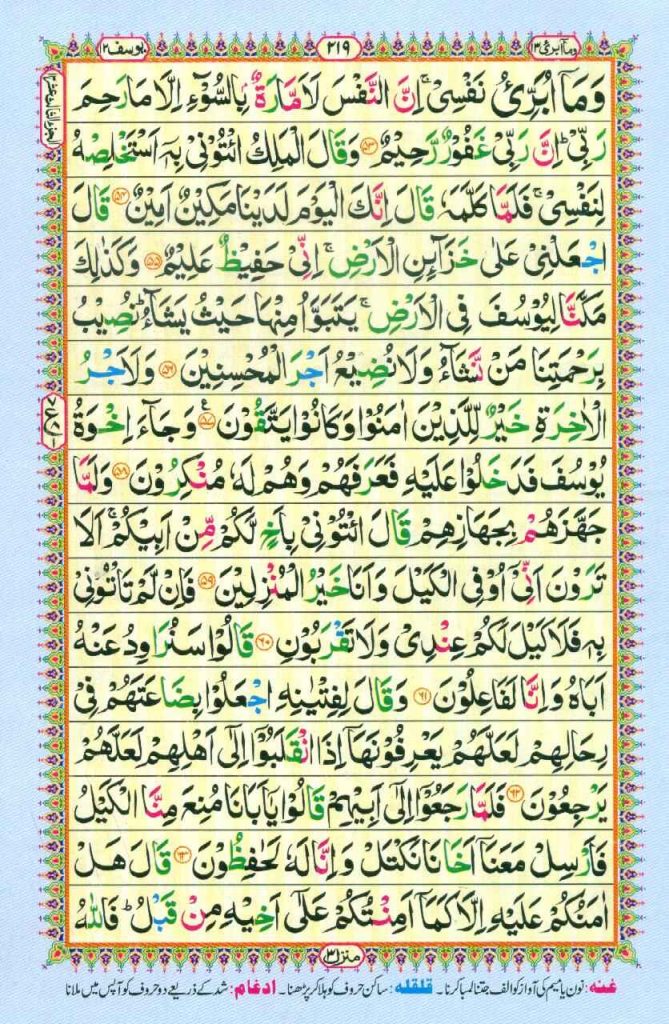 وما ابرئ ١٣
٢١٩
يوسف ١٢
الجزء الثالث عشر
وَمَآ اُبَرِّئُ نَفْسِیْ ۚ اِنَّ النَّفْسَ لَاَمَّارَةٌۢ بِالسُّوْٓءِ اِلَّا مَارَحِمَ
رَبِّیْ ؕ اِنَّ رَبِّیْ غَفُوْرٌ رَّحِیْمٌ ﴿۵۳﴾ وَقَالَ الْمَلِكُ ائْتُوْنِیْ بِهٖۤ اَسْتَخْلِصْهُ
لِنَفْسِیْ ۚ فَلَمَّا كَلَّمَهٗ قَالَ اِنَّكَ الْیَوْمَ لَدَیْنَا مَكِیْنٌ اَمِیْنٌ ﴿۵۴﴾ قَالَ
اجْعَلْنِیْ عَلٰی خَزَآئِنِ الْاَرْضِ ۚ اِنِّیْ حَفِیْظٌ عَلِیْمٌ ﴿۵۵﴾ وَكَذٰلِكَ
مَكَّنَّا لِیُوْسُفَ فِی الْاَرْضِ ۚ یَتَبَوَّاُ مِنْهَا حَیْثُ یَشَآءُ ؕ نُصِیْبُ
بِرَحْمَتِنَا مَنْ نَّشَآءُ وَلَا نُضِیْعُ اَجْرَ الْمُحْسِنِیْنَ ﴿۵۶﴾ وَلَاَجْرُ
الْاٰخِرَةِ خَیْرٌ لِّلَّذِیْنَ اٰمَنُوْا وَكَانُوْا یَتَّقُوْنَ ﴿۵۷﴾ وَجَآءَ اِخْوَةُ
یُوْسُفَ فَدَخَلُوْا عَلَیْهِ فَعَرَفَهُمْ وَهُمْ لَهٗ مُنْكِرُوْنَ ﴿۵۸﴾ وَلَمَّا
جَهَّزَهُمْ بِجَهَازِهِمْ قَالَ ائْتُوْنِیْ بِاَخٍ لَّكُمْ مِّنْ اَبِیْكُمْ ۚ اَلَا
تَرَوْنَ اَنِّیْۤ اُوْفِی الْكَیْلَ وَاَنَا خَیْرُ الْمُنْزِلِیْنَ ﴿۵۹﴾ فَاِنْ لَّمْ تَاْتُوْنِیْ
بِهٖ فَلَا كَیْلَ لَكُمْ عِنْدِیْ وَلَا تَقْرَبُوْنِ ﴿۶۰﴾ قَالُوْا سَنُرَاوِدُ عَنْهُ
اَبَاهُ وَاِنَّا لَفٰعِلُوْنَ ﴿۶۱﴾ وَقَالَ لِفِتْیٰنِهِ اجْعَلُوْا بِضَاعَتَهُمْ فِیْ
رِحَالِهِمْ لَعَلَّهُمْ یَعْرِفُوْنَهَاۤ اِذَا انْقَلَبُوْۤا اِلٰۤی اَهْلِهِمْ لَعَلَّهُمْ
یَرْجِعُوْنَ ﴿۶۲﴾ فَلَمَّا رَجَعُوْۤا اِلٰۤی اَبِیْهِمْ قَالُوْا یٰۤاَبَانَا مُنِعَ مِنَّا الْكَیْلُ
فَاَرْسِلْ مَعَنَاۤ اَخَانَا نَكْتَلْ وَاِنَّا لَهٗ لَحٰفِظُوْنَ ﴿۶۳﴾ قَالَ هَلْ
اٰمَنُكُمْ عَلَیْهِ اِلَّا كَمَاۤ اَمِنْتُكُمْ عَلٰۤی اَخِیْهِ مِنْ قَبْلُ ؕ فَاللّٰهُ
منزل ٣
غنه : نون یا میم کی آواز کو الف جتنا لمبا کرنا۔ قلقله : ساکن حروف کو ہلا کر پڑھنا۔ ادغام : شد کے ذریعے دو حروف کو آپس میں ملانا